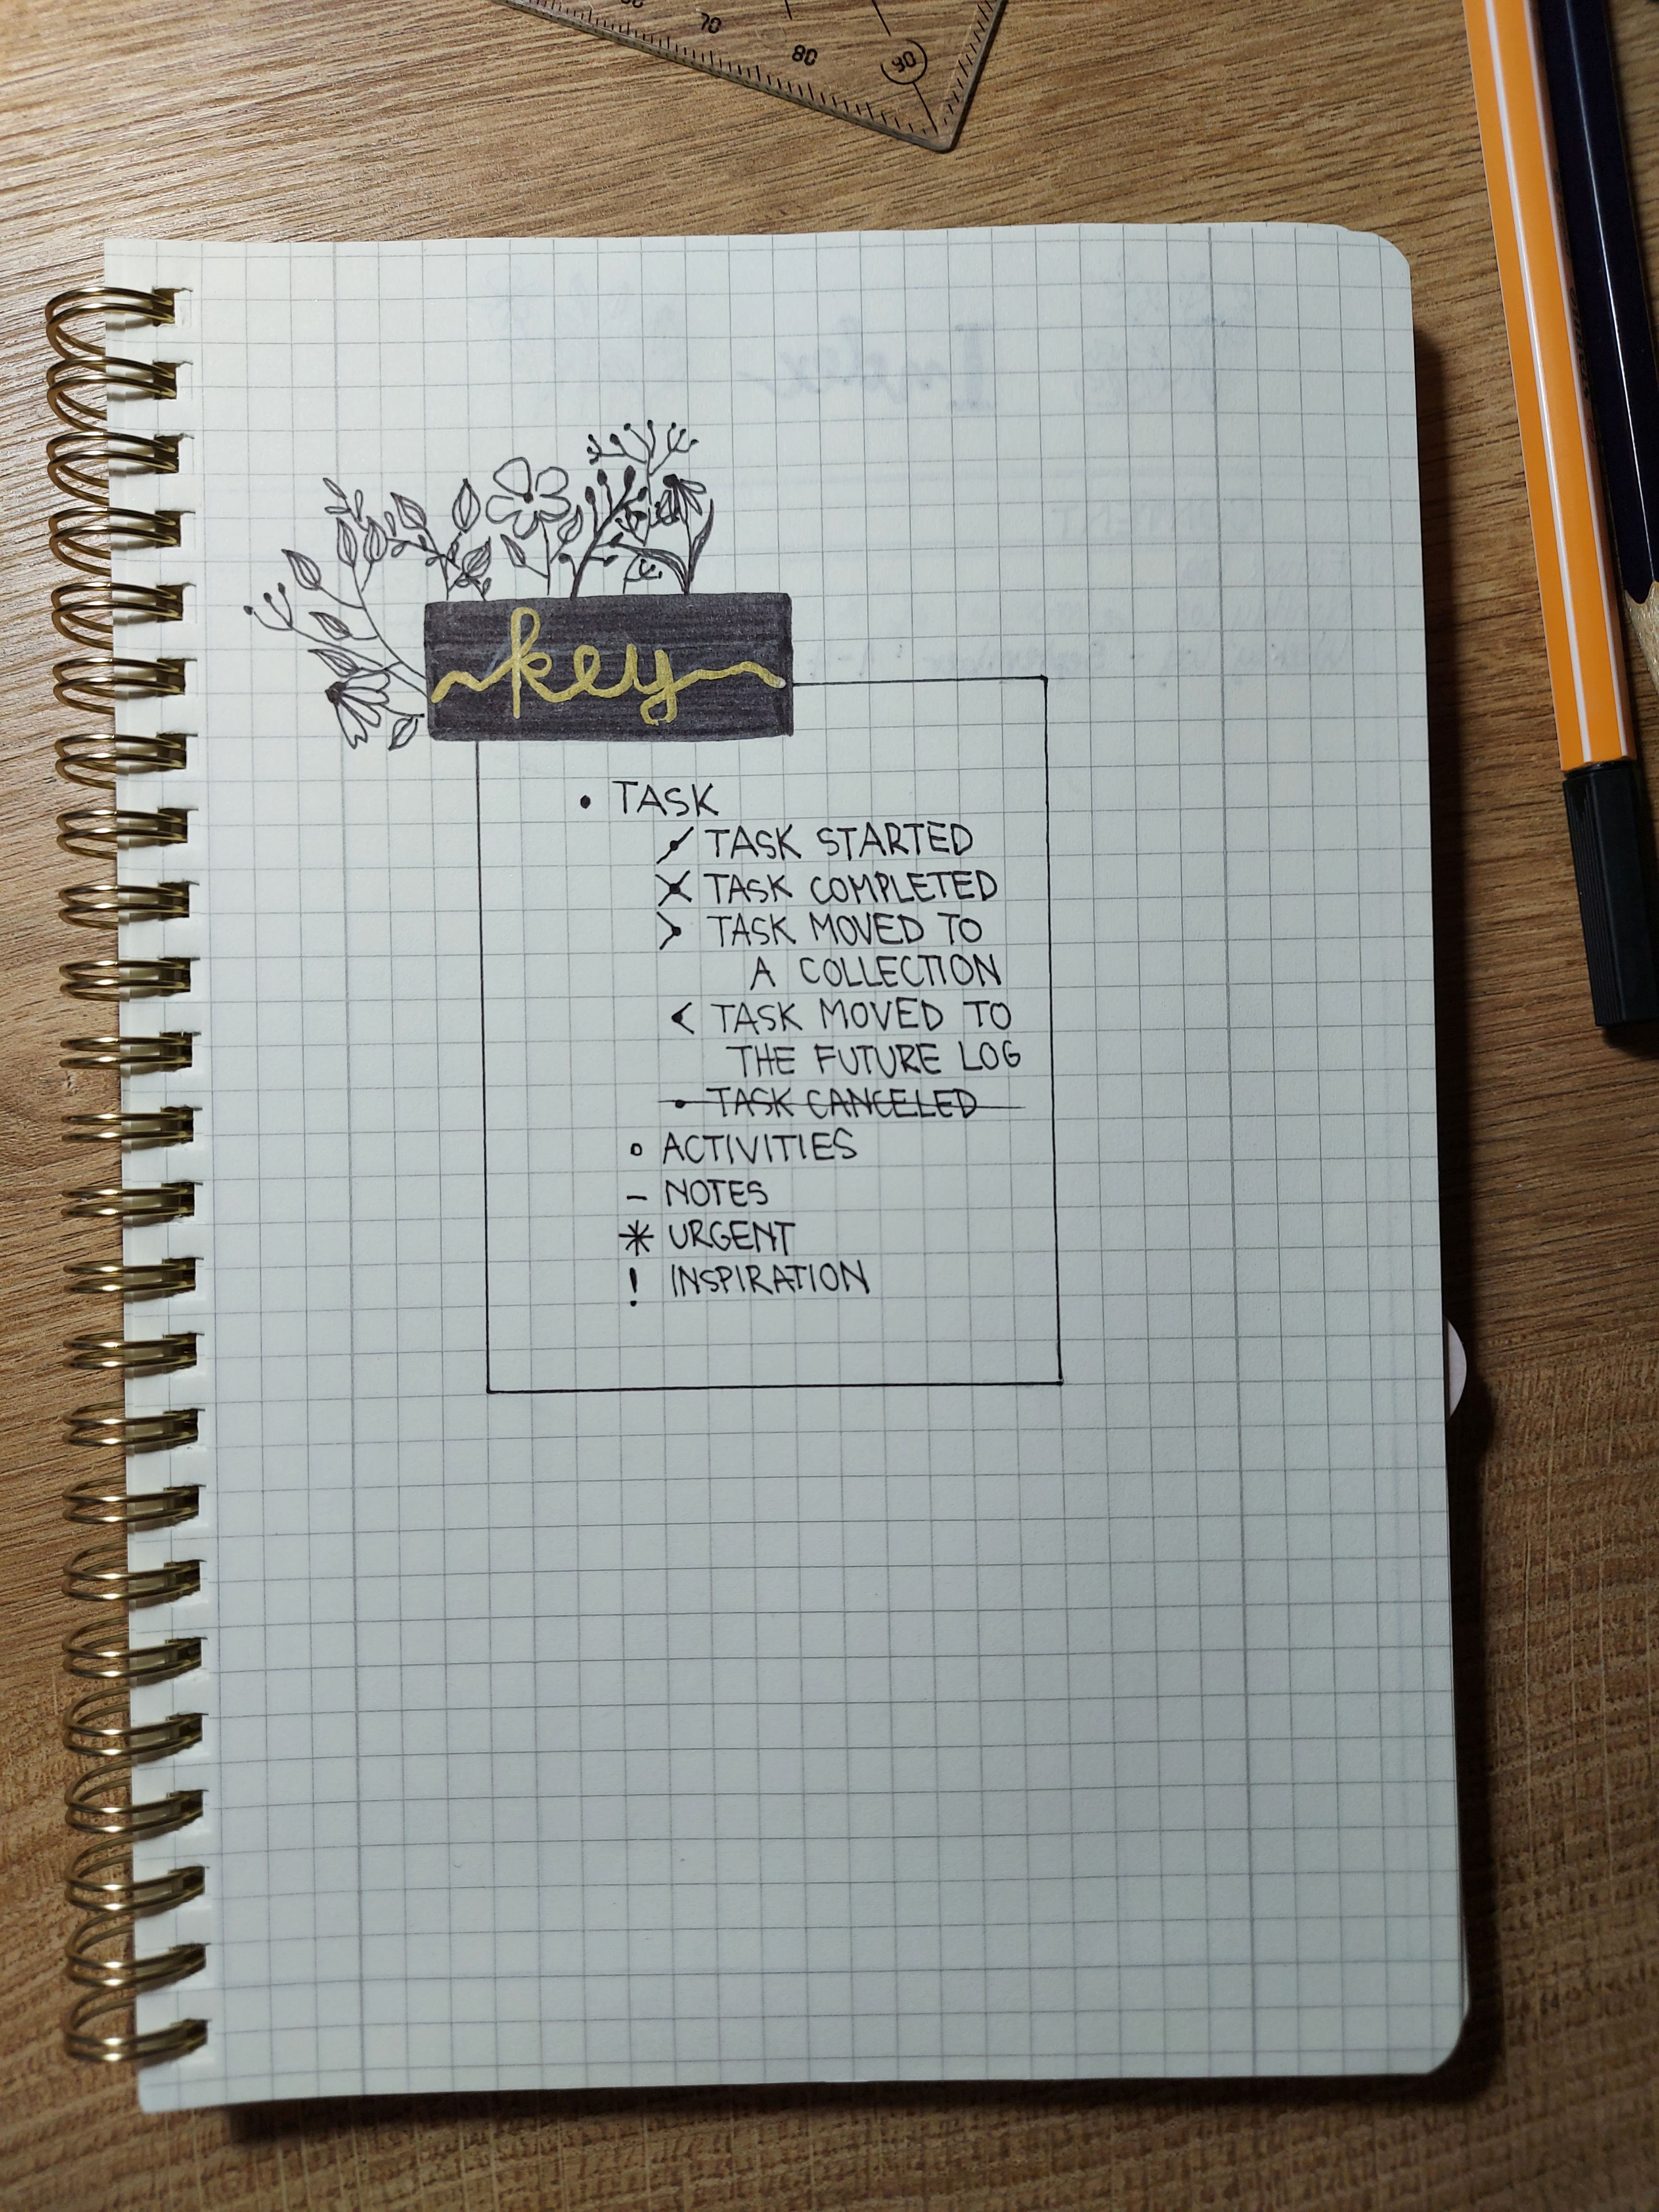 70
80
90
key
• TASK
/ TASK STARTED
X TASK COMPLETED
> TASK MOVED TO
A COLLECTION
< TASK MOVED TO
THE FUTURE LOG
• TASK CANCELED
o ACTIVITIES
– NOTES
* URGENT
! INSPIRATION
Index